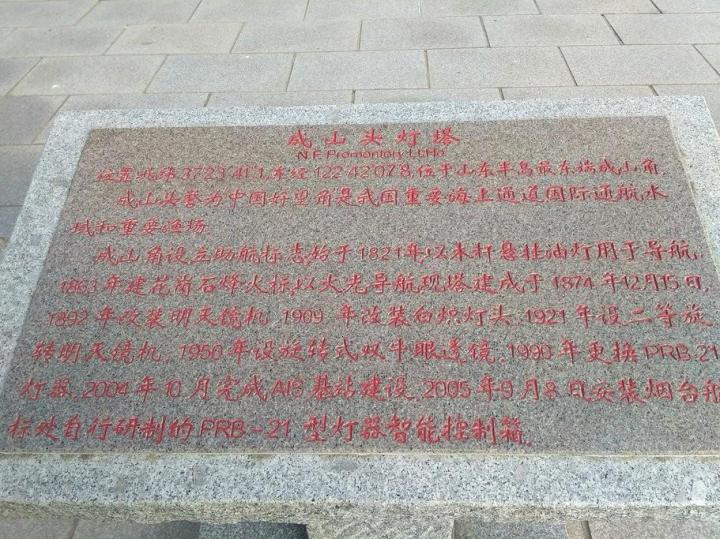 成山头灯塔
N E Promontory Lt.Ho
位置北纬37 23 41 1,东经122 42 07 8,位于山东半岛最东端成山角,
成山头誉为中国好望角是我国重要海上通道国际通航水
域和重要渔场.
成山角设立助航标志始于1821年,以木杆悬挂油灯用于导航,
1863年建花岗石烽火标,以火光导航现塔建成于1874年12月15日,
1892年改装明天镜机,1909年改装白炽灯头,1921年设二等旋
转明天镜机,1950年设旋转式双牛眼透镜,1990年更换PRB-21
灯器,2004年10月完成AIS基站建设,2005年9月8日安装烟台航
标处自行研制的PRB-21型灯器智能控制箱.